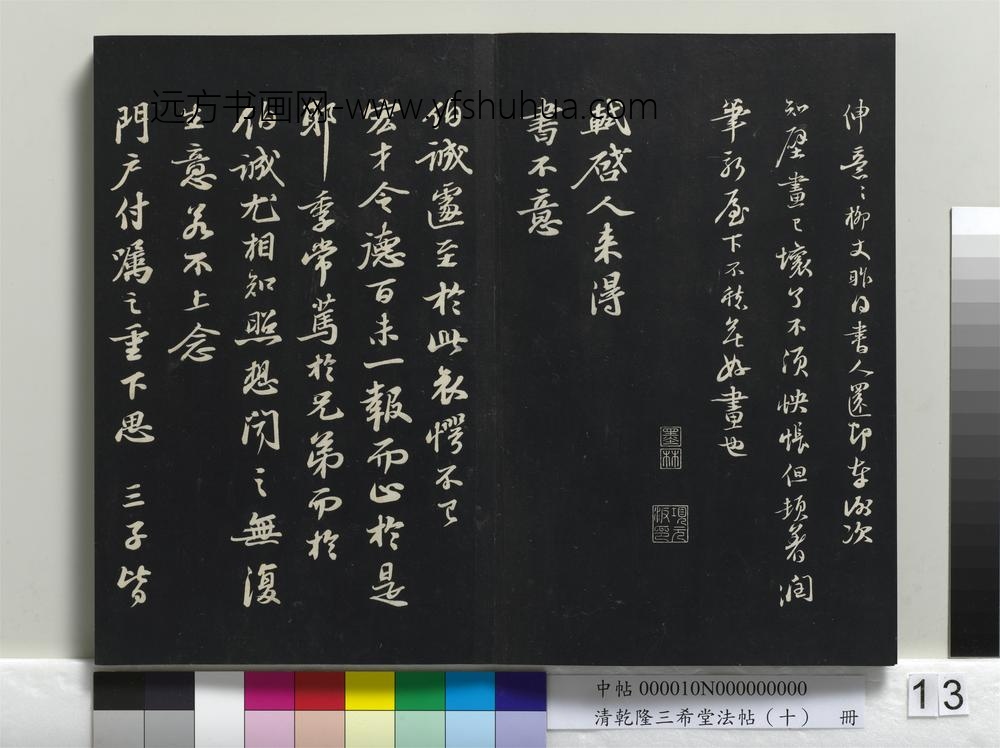 伸意〻柳丈昨日書人還即奉謝次
知壁畫已壞了不須怏悵但頓著潤
筆新屋下不愁無好畫也
墨林
項元
軾啓人来得
書不意
伯誠遽至於此哀愕不已
宏才令德百未一報而止於是
耶季常篤於兄弟而於
伯誠尤相知照想聞之無復
生意若不上念
門户付囑之重下思三子皆
远方书画网-www.yfshuhua.com
中帖 000010N000000000
清乾隆三希堂法帖（十） 冊
13